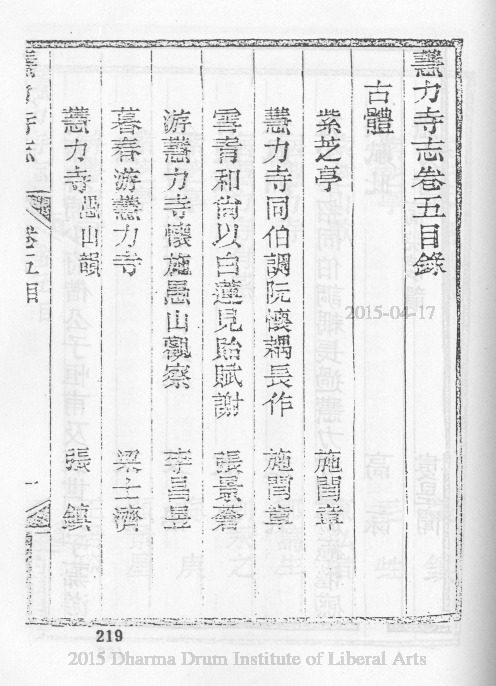 慧力寺志卷五目錄
古體
紫芝亭 施閏章
慧力寺同伯調阮懷耦長作 施閏章
雲青和尚以白蓮見貽賦謝 張景蒼
游慧力寺懷施愚山觀察 李昌昱
暮春游慧力寺 梁士濟
慧力寺愚山韻 張鎮
慧力寺志 卷五目 一
219
2015-04-17
2015 Dharma Drum Institute of Liberal Arts